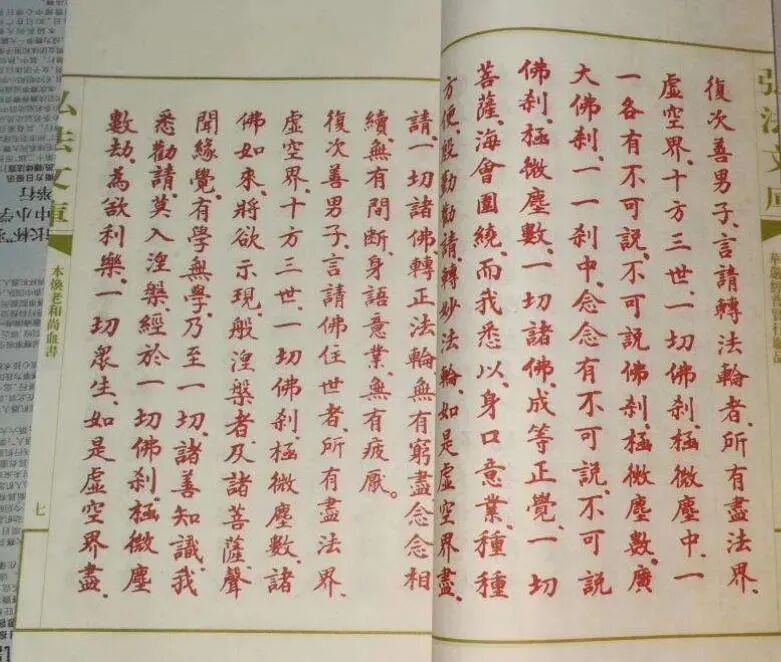 復次善男子、言請轉法輪者、所有盡法界、
虛空界、十方三世、一切佛刹、極微塵中、一
一各有不可説、不可説佛刹、極微塵數、廣
大佛刹、一一刹中、念念有不可説、不可説
佛刹、極微塵數、一切諸佛、成等正覺、一切
菩薩、海會圍繞、而我悉以、身口意業、種種
方便、殷勤勸請、轉妙法輪、如是虛空界盡、
請、一切諸佛、轉正法輪、無有窮盡念念相
續、無有間断、身語意業、無有疲厭。
復次善男子、言請佛住世者、所有盡法界、
虛空界、十方三世、一切佛刹、極微塵數、諸
佛如來、將欲示現、般涅槃者、及諸菩薩聲
聞緣覺、有學無學、乃至一切、諸善知識、我
悉勸請、莫入涅槃、經於一切佛刹、極微塵
數劫、為欲利樂、一切眾生、如是虛空界盡、
弘法文庫
本煥老和尚血書
七
举行
中小学